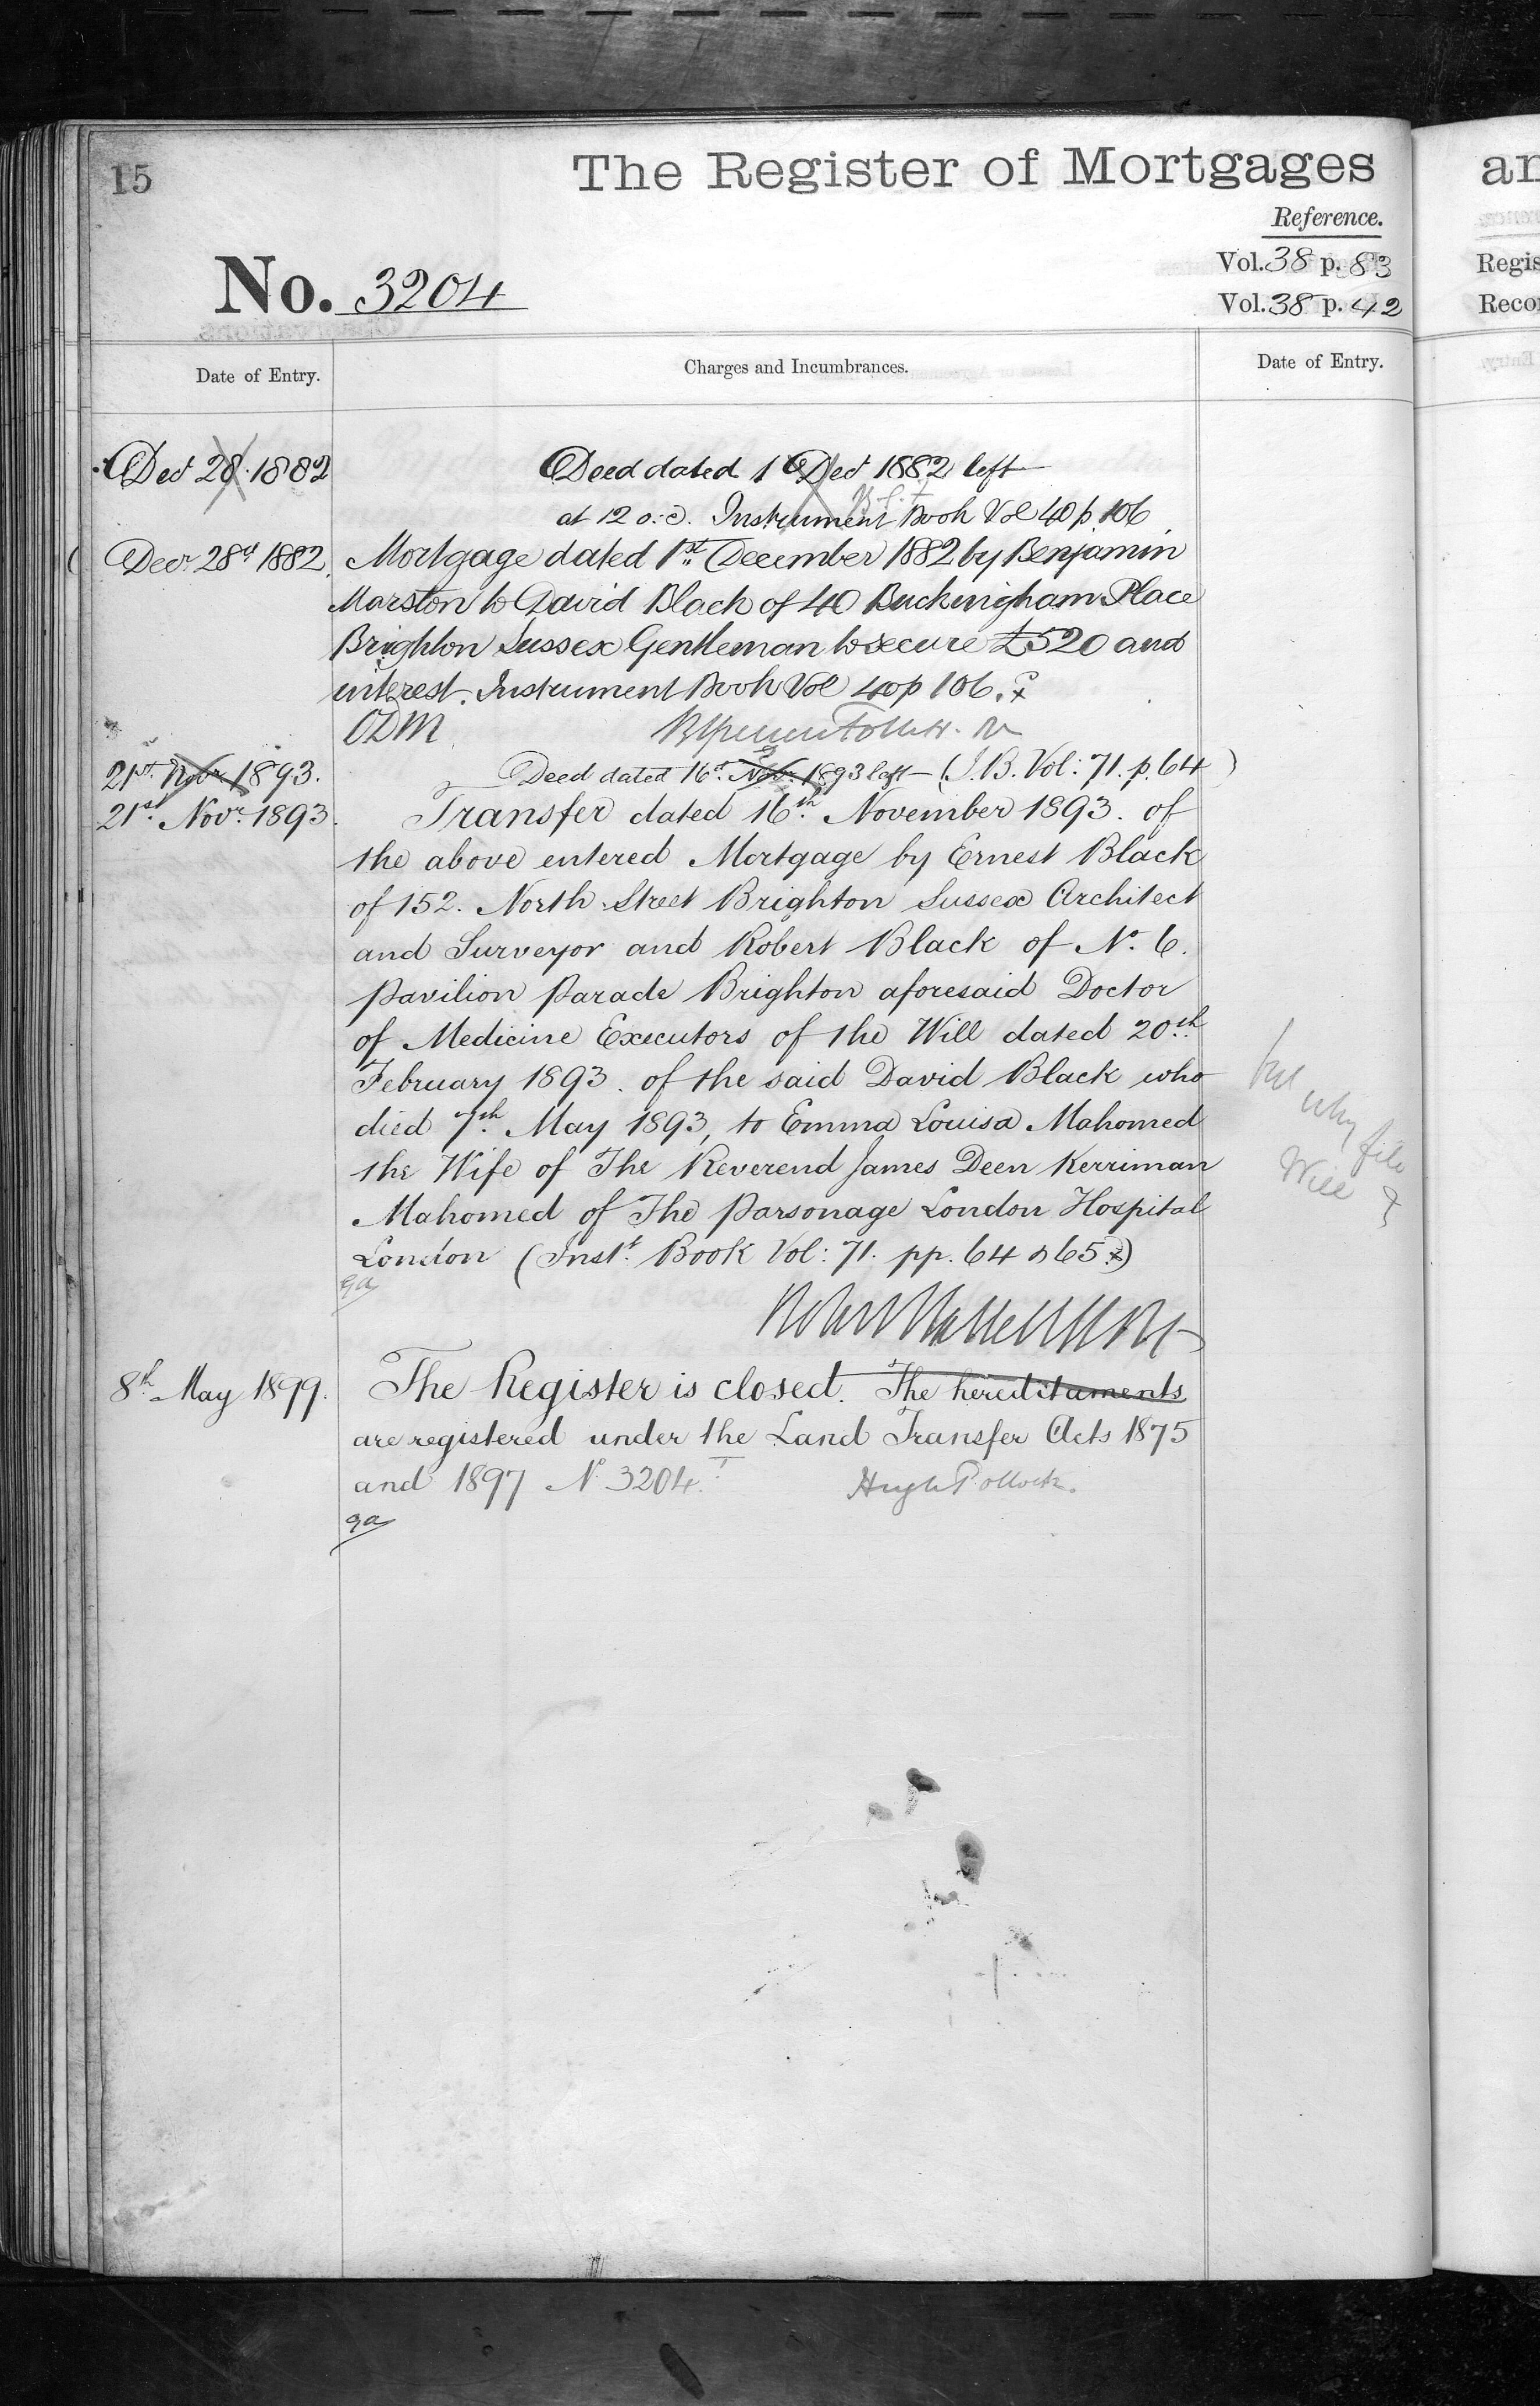 15
The Register of Mortgages
Reference.
No. 3204
Vol. 38 p. 83
Vol. 38 p. 42
Date of Entry.
Charges and Incumbrances.
Date of Entry.
Decr 28. 1882
Deed dated 1 Decr 1882 left
at 12 o.c. Instrument Book Vol 40 p 106
Decr 28th 1882.
Mortgage dated 1st December 1882 by Benjamin
Marston to David Black of 40 Buckingham Place
Brighton Sussex Gentleman to secure £520 and
interest. Instrument Book Vol 40 p 106.
ODM
21st Novr 1893.
Deed dated 16th Novr 1893 left — (I.B. Vol: 71. p. 64)
21st Novr 1893.
Transfer dated 16th November 1893. of
the above entered Mortgage by Ernest Black
of 152. North Street Brighton Sussex Architect
and Surveyor and Robert Black of No. 6.
Pavilion Parade Brighton aforesaid Doctor
of Medicine Executors of the Will dated 20th
February 1893. of the said David Black who
died 7th May 1893, to Emma Louisa Mahomed
the Wife of The Reverend James Deen Kerriman
Mahomed of The Parsonage London Hospital
London (Inst. Book Vol: 71. pp. 64 & 65)
why file
Will ?
8th May 1899.
The Register is closed. The hereditaments
are registered under the Land Transfer Acts 1875
and 1897 No 3204.
Hugh Pollock.
an
Regis
Recor